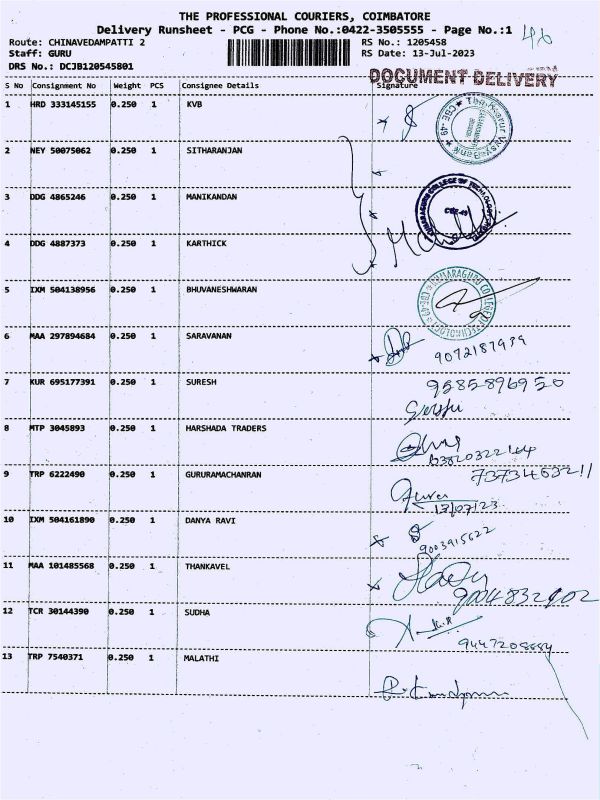 THE PROFESSIONAL COURIERS, COIMBATORE
Delivery Runsheet - PCG - Phone No.:0422-3505555 - Page No.:1
46
Route: CHINAVEDAMPATTI 2
RS No.: 1205458
Staff: GURU
RS Date: 13-Jul-2023
DRS No.: DCJB120545801
DOCUMENT DELIVERY
S No Consignment No Weight PCS Consignee Details Signature
1 HRD 333145155 0.250 1 KVB
2 NEY 50075062 0.250 1 SITHARANJAN
3 DDG 4865246 0.250 1 MANIKANDAN
4 DDG 4887373 0.250 1 KARTHICK
5 IXM 504138956 0.250 1 BHUVANESHWARAN
6 MAA 297894684 0.250 1 SARAVANAN
9072187939
7 KUR 695177391 0.250 1 SURESH 9585896950
8 MTP 3045893 0.250 1 HARSHADA TRADERS
63820322164
9 TRP 6222490 0.250 1 GURURAMACHANRAN 7373463211
Guru
13/07/23
10 IXM 504161890 0.250 1 DANYA RAVI
9003915622
11 MAA 101485568 0.250 1 THANKAVEL
9004832902
12 TCR 30144390 0.250 1 SUDHA
9447208884
13 TRP 7540371 0.250 1 MALATHI